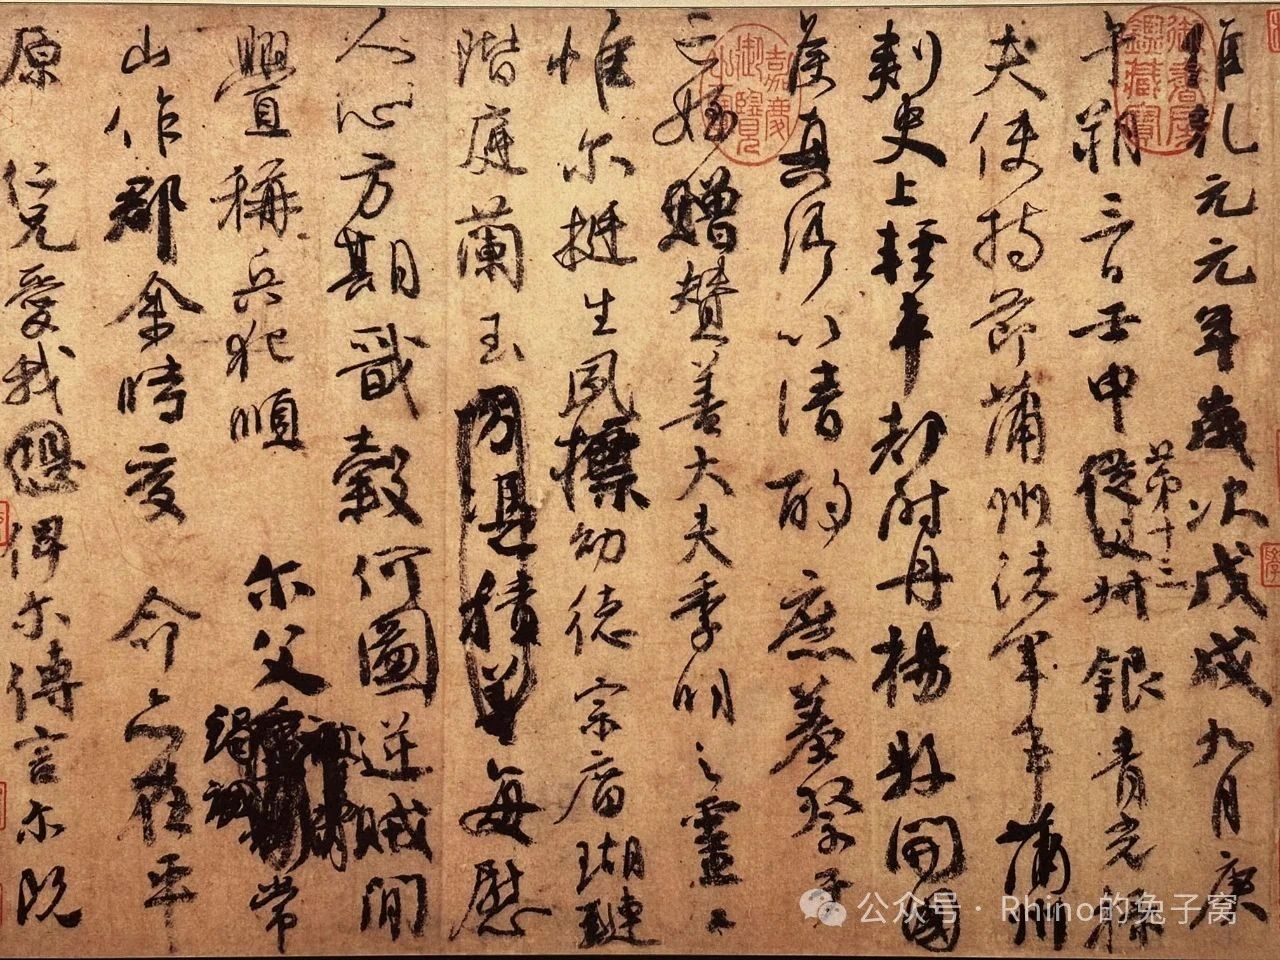 維乾元元年歲次戊戌九月庚
午朔三日壬申第十三從父州銀青光祿
夫使持節蒲州諸軍事蒲州
刺史上輕車都尉丹楊縣開國
侯真卿以清酌庶羞祭于
亡姪贈贊善大夫季明之靈曰
惟爾挺生夙標幼德宗廟瑚璉
階庭蘭玉方憑積善每慰
人心方期戩穀何圖逆賊閒
釁稱兵犯順爾父竭誠常
山作郡余時受命亦在平
原仁兄愛我恐俾爾傳言爾既
御書房鑑藏寶
嘉慶御覽之寶
公众号 · Rhino的兔子窝